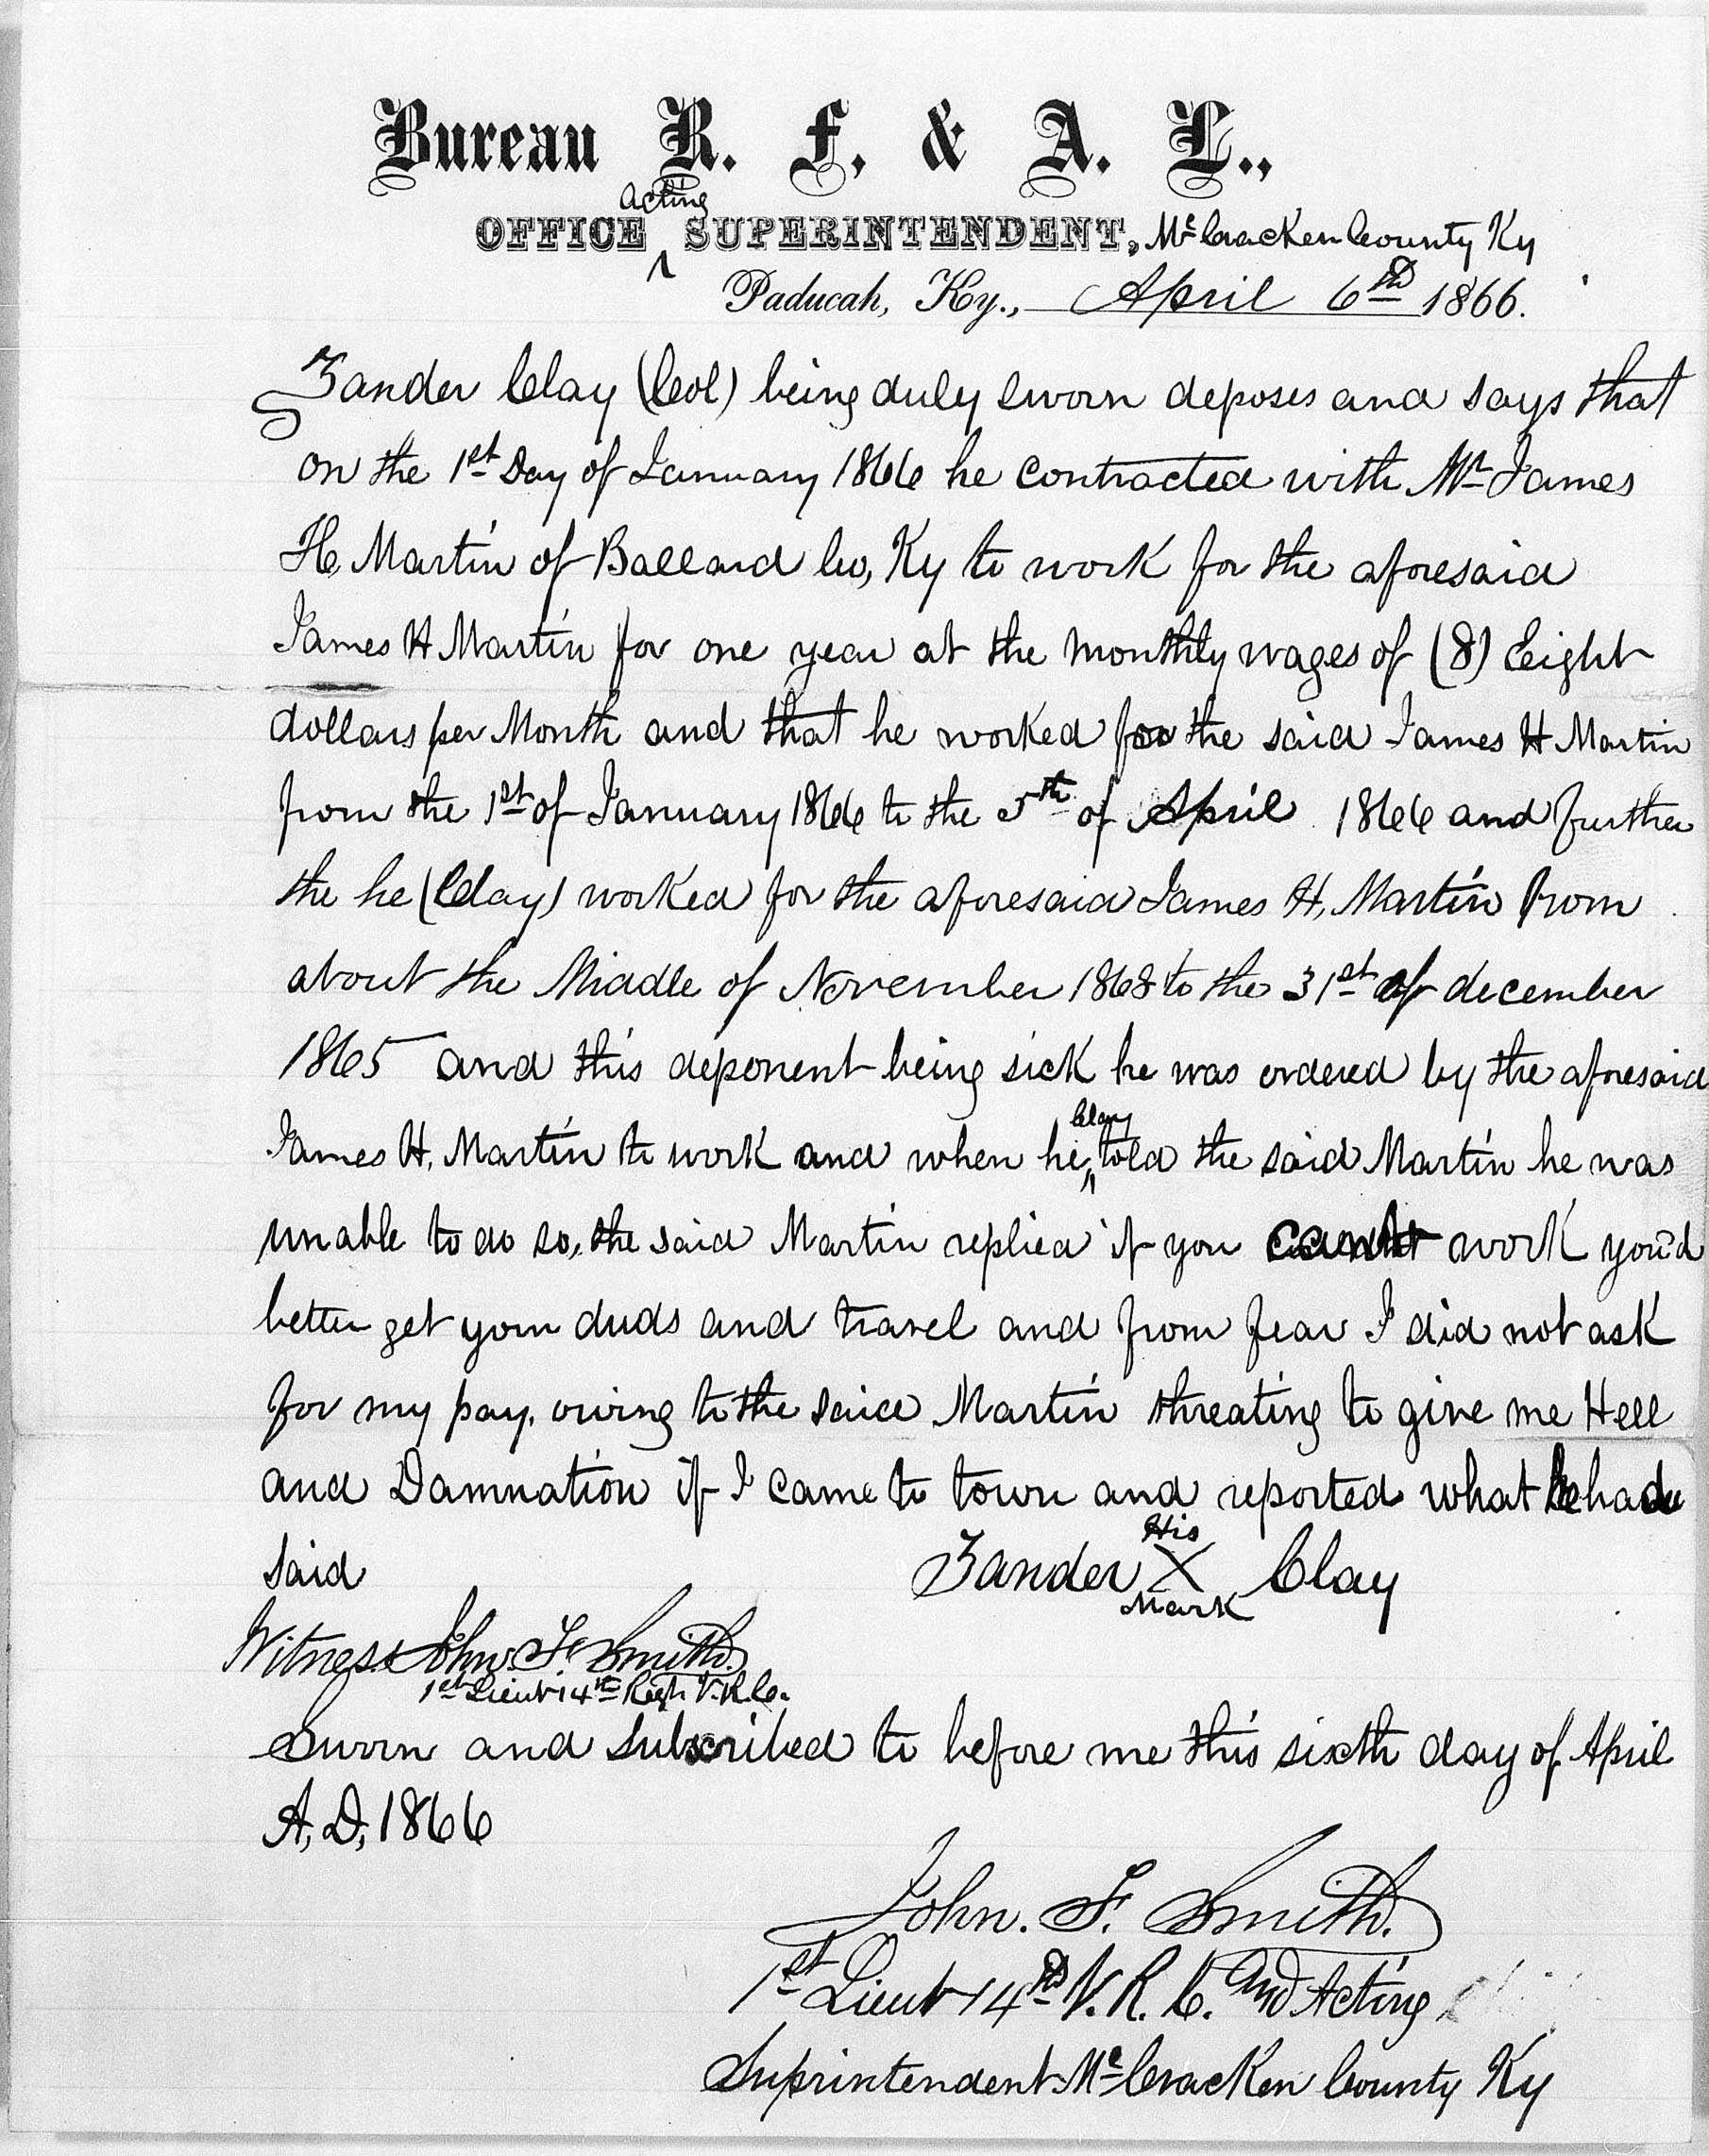 Bureau R. F. & A. L.,
Acting
OFFICE ^ SUPERINTENDENT, McCracken County Ky
Paducah, Ky., April 6th 1866.
Zander Clay (Col) being duly sworn deposes and says that
on the 1st Day of January 1866 he contracted with Mr James
H. Martin of Ballard Co, Ky to work for the aforesaid
James H Martin for one year at the monthly wages of (8) Eight
dollars per Month and that he worked for the said James H Martin
from the 1st of January 1866 to the 5th of April 1866 and further
the he (Clay) worked for the aforesaid James H, Martin from
about the Middle of November 1868 to the 31st of december
1865 and this deponent being sick he was ordered by the aforesaid
James H, Martin to work and when he, ^Clay told the said Martin he was
unable to do so, the said Martin replied if you cannt work you'd
better get your duds and travel and from fear I did not ask
for my pay. owing to the said Martin threating to give me Hell
and Damnation if I came to town and reported what he had
said
His
Zander X Clay
Mark
Witness John. F. Smith.
1st Lieut 14th Regt V.R.C.
Sworn and subscribed to before me this sixth day of April
A, D, 1866
John. F. Smith.
1st Lieut 14th V. R. C. And Acting
Suprintendent McCracken County Ky